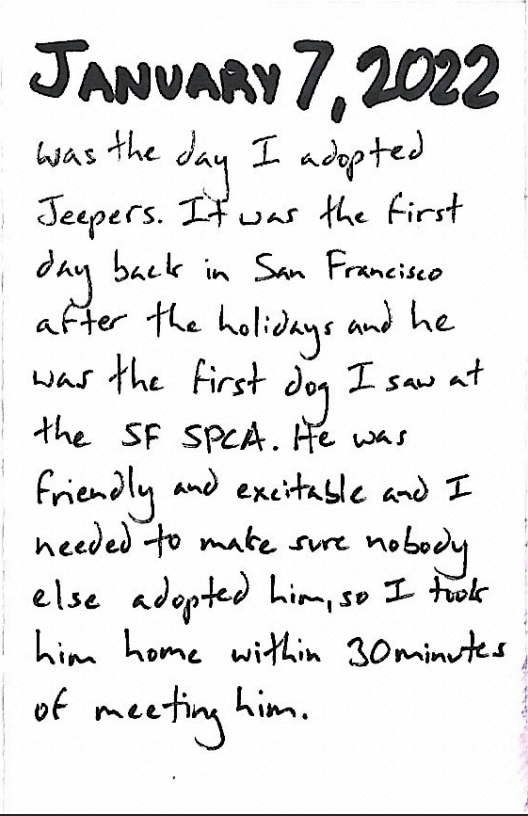 JANUARY 7, 2022
was the day I adopted
Jeepers. It was the first
day back in San Francisco
after the holidays and he
was the first dog I saw at
the SF SPCA. He was
friendly and excitable and I
needed to make sure nobody
else adopted him, so I took
him home within 30 minutes
of meeting him.